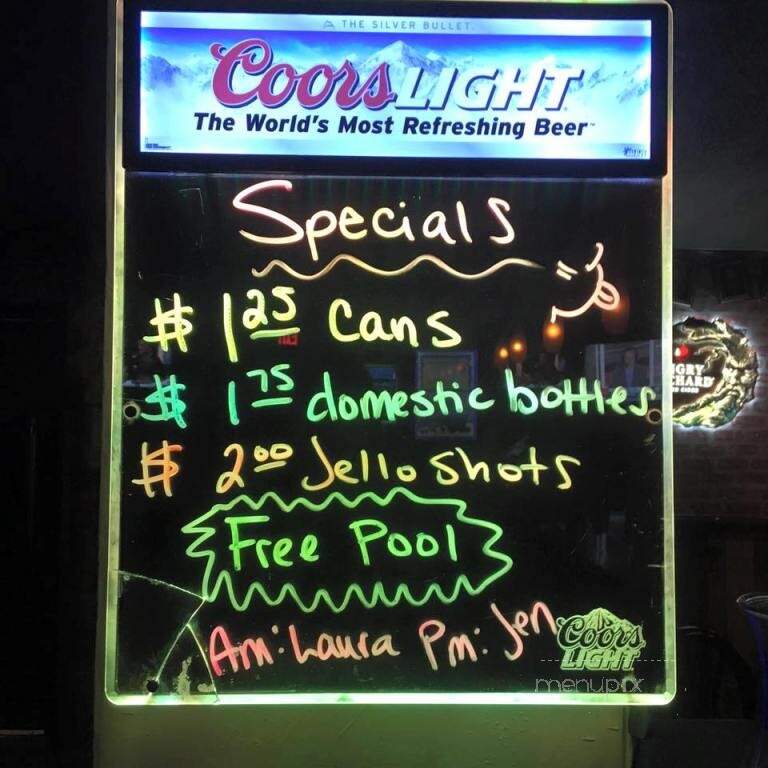 THE SILVER BULLET
Coors LIGHT
The World's Most Refreshing Beer
Specials
$ 1 25 Cans
$ 1 75 domestic bottles
$ 2 00 Jello Shots
Free Pool
Am: Laura Pm: Jen
Coors
LIGHT
menupix
NGRY
CHARD